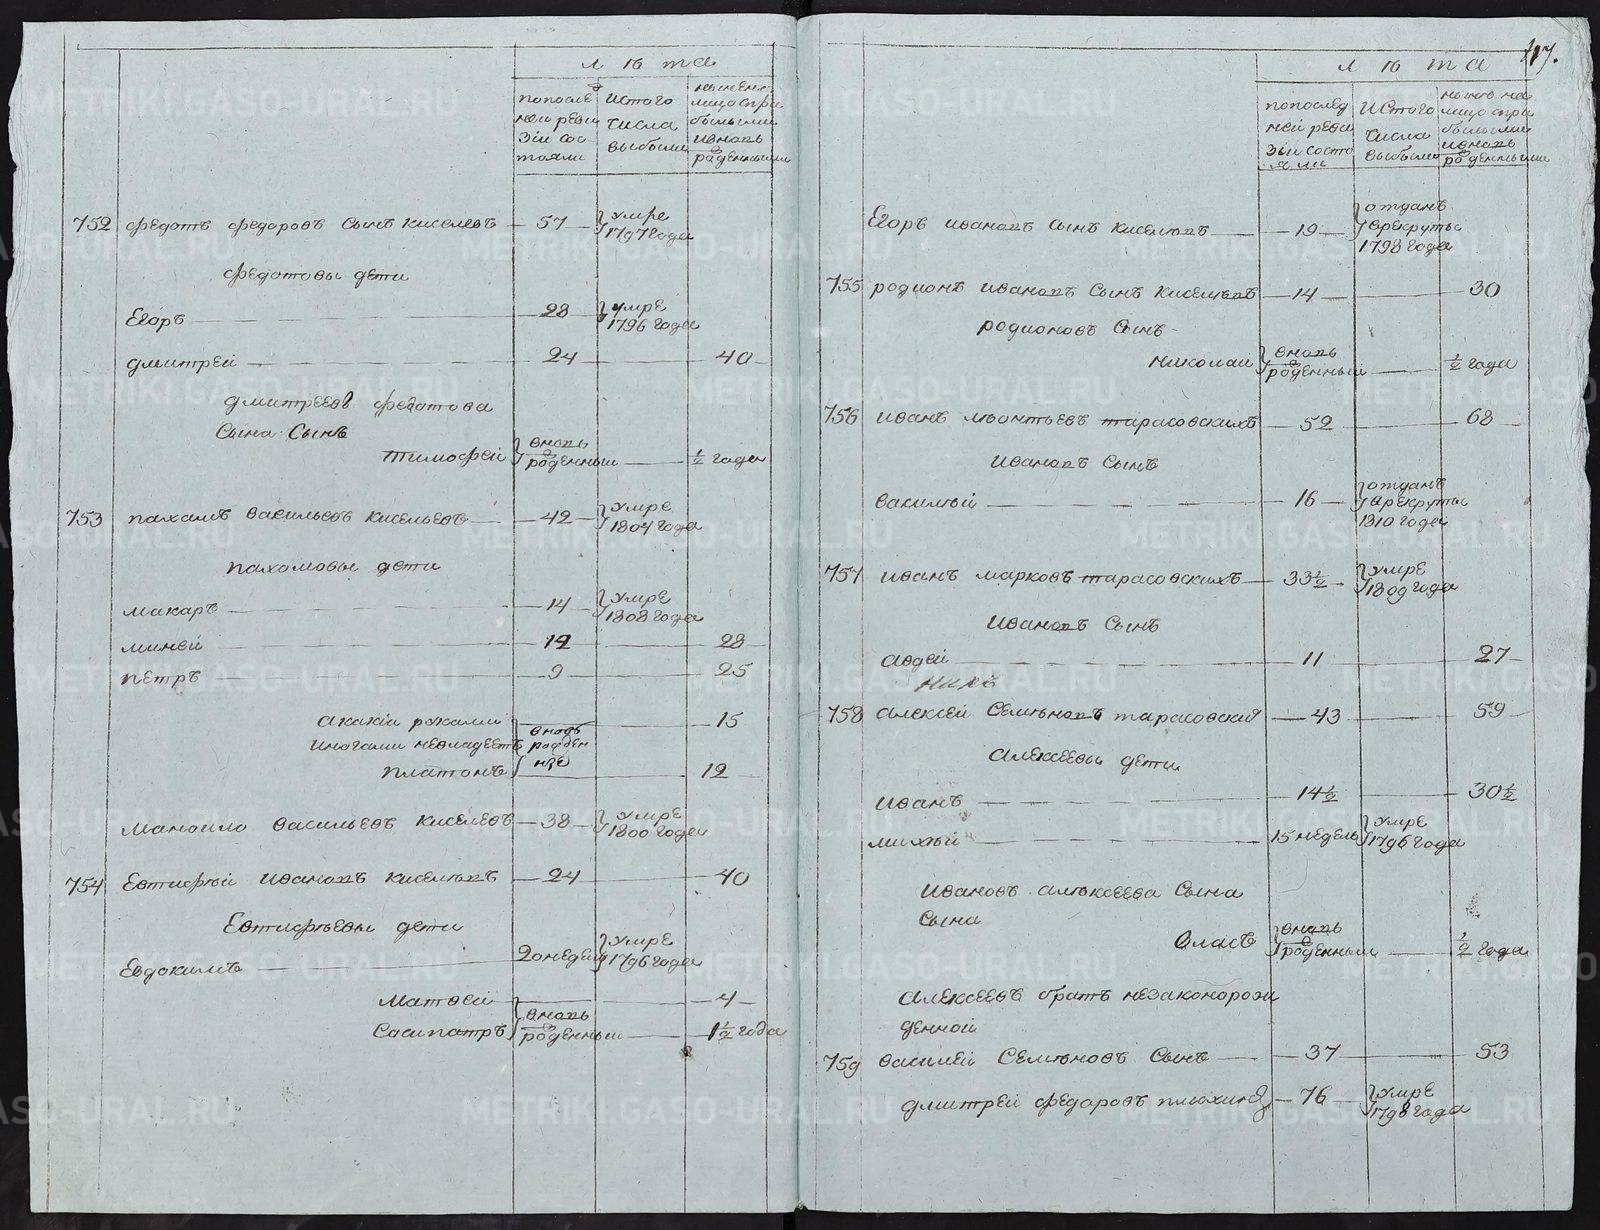 лѣта
попослѣд
ней реви
зiи сос
тояли
Истого
числа
выбыли
нынѣ на
лицо спри
былыми
ивновь
рожденными
752 Федотъ федоровъ Сынъ киселевъ — 57 — умре
1797 года
Федотовы дети
Егоръ — 28 умре
1796 года
дмитрей — 24 — 40
дмитреевъ федотова
Сына Сынъ
тимофей вновь
рожденный — ½ года
753 пахомъ Васильевъ киселевъ — 42 — умре
1804 года
пахомовы дети
макаръ — 14 умре
1808 года
миней — 12 — 28
петръ — 9 — 25
акакiи руками — 15
иногами невладеетъ
вновь
рожден
ные
платонъ — 12
Маноило Васильевъ киселевъ — 38 умре
1800 года
754 Евтифѣй Ивановъ киселевъ — 24 — 40
Евтифѣевы дети
Евдокимъ — 20 недель умре
1796 года
Матвей — 4
Сосипатръ вновь
рожденныи — 1½ года
117.
лѣта
попослед
ней реви
зiи состо
яли
Истого
числа
выбыли
нынѣ на
лицо спри
былыми
ивновь
рожденными
Егоръ ивановъ Сынъ киселевъ — 19 — отданъ
врекруты
1798 года
755 родионъ ивановъ Сынъ киселевъ — 14 — 30
родионовъ Сынъ
николаи вновь
рожденный — ½ года
756 иванъ лѣонтьевъ тарасовскихъ — 52 — 68
Ивановъ Сынъ
василѣй — 16 — отданъ
врекруты
1810 года
757 иванъ марковъ тарасовскихъ — 33½ — умре
1809 года
Ивановъ Сынъ
авдей — 11 — 27
758 алексей Семѣновъ тарасовский — 43 — 59
алексеевы дети
иванъ — 14½ — 30½
михѣй — 15 недель умре
1796 года
Ивановъ алѣксеева Сына
Сына
Власъ вновь
рожденныи — ½ года
алексеевъ братъ незаконорож
денной
759 василей Семѣновъ Сынъ — 37 — 53
дмитрей федоровъ плюхинъ — 76 — умре
1798 года
METRIKI.GASO-URAL.RU